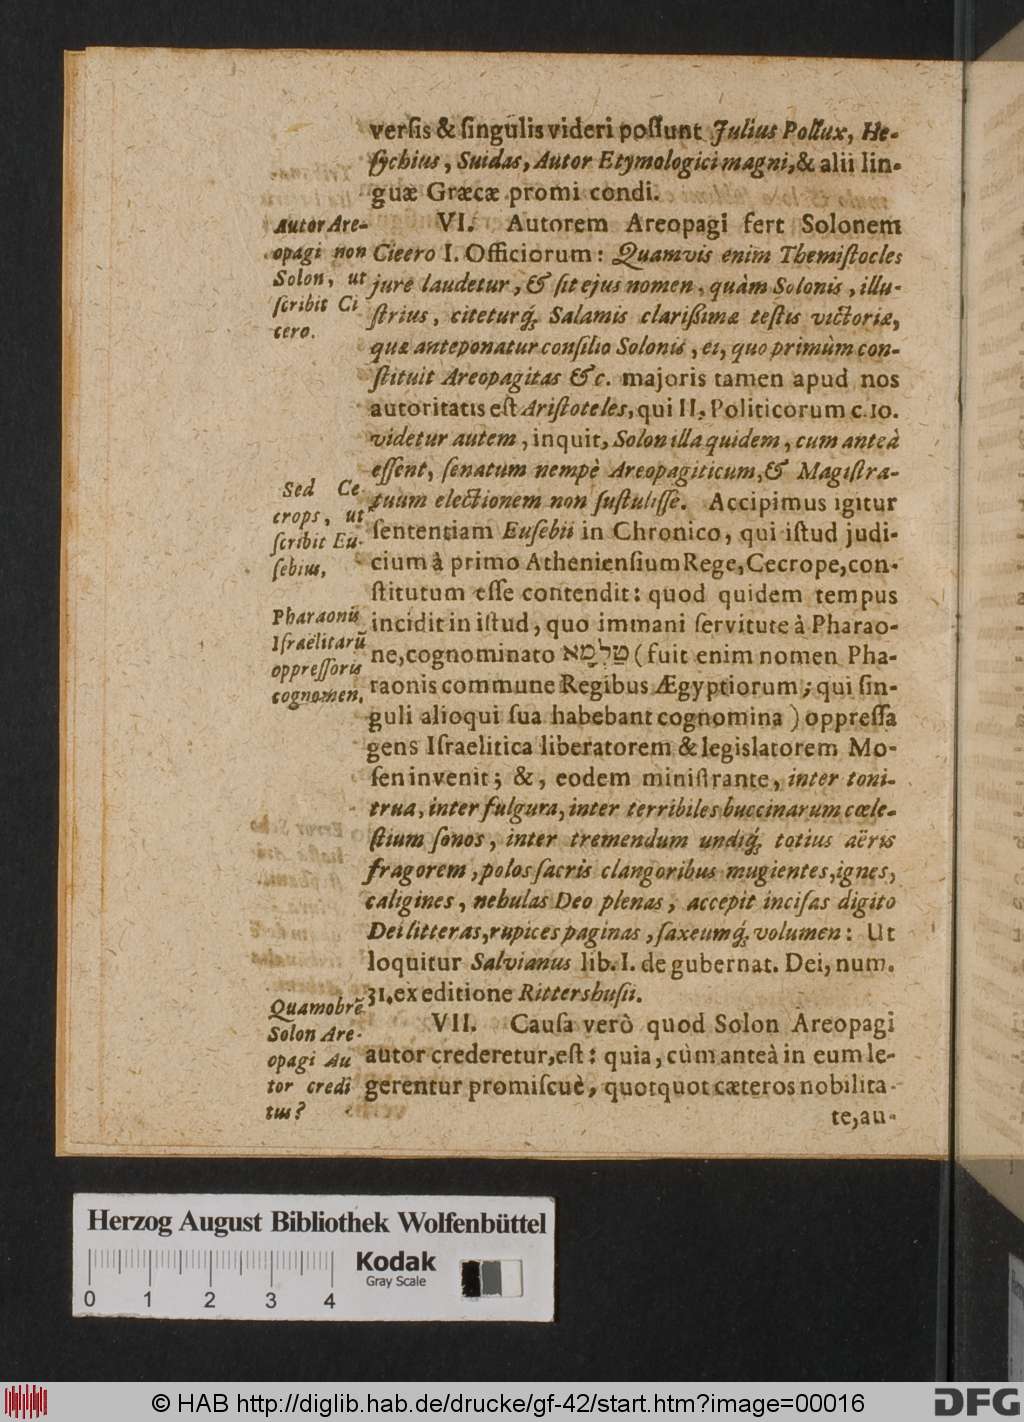 verſis & ſingulis videri poſſunt Julius Pollux, He-
ſychius, Suidas, Autor Etymologici magni, & alii lin-
guæ Græcæ promi condi.
Autor Are-
opagi non
Solon, ut
ſcribit Ci
cero.
VI. Autorem Areopagi fert Solonem
Cicero I. Officiorum: Quamvis enim Themiſtocles
jure laudetur, & ſit ejus nomen, quàm Solonis, illu-
ſtrius, citeturq́; Salamis clarißimæ teſtis victoriæ,
quæ anteponatur conſilio Solonis, ei, quo primùm con-
ſtituit Areopagitas &c. majoris tamen apud nos
autoritatis eſt Ariſtoteles, qui II. Politicorum c. 10.
videtur autem, inquit, Solon illa quidem, cum anteà
eſſent, ſenatum nempè Areopagiticum, & Magiſtra-
tuum electionem non ſuſtuliſſe. Accipimus igitur
Sed Ce-
crops, ut
ſcribit Eu-
ſebius,
ſententiam Euſebii in Chronico, qui iſtud judi-
cium à primo Athenienſium Rege, Cecrope, con-
ſtitutum eſſe contendit: quod quidem tempus
Pharaonis
Iſraëlitarũ
oppreſſoris
cognomen,
incidit in iſtud, quo immani ſervitute à Pharao-
ne, cognominato טַלְמָא (fuit enim nomen Pha-
raonis commune Regibus Ægyptiorum; qui ſin-
guli alioqui ſua habebant cognomina) oppreſſa
gens Iſraelitica liberatorem & legislatorem Mo-
ſen invenit; &, eodem miniſtrante, inter toni-
trua, inter fulgura, inter terribiles buccinarum cœle-
ſtium ſonos, inter tremendum undiq́; totius aëris
fragorem, polos ſacris clangoribus mugientes, ignes,
caligines, nebulas Deo plenas, accepit inciſas digito
Dei litteras, rupices paginas, ſaxeumq́; volumen: Ut
loquitur Salvianus lib. I. de gubernat. Dei, num.
31. ex editione Rittershuſii.
Quamobrẽ
Solon Are-
opagi Au
tor credi
tus?
VII. Cauſa verò quod Solon Areopagi
autor crederetur, eſt: quia, cùm anteà in eum le-
gerentur promiſcuè, quotquot cæteros nobilita-
te, au-
Herzog August Bibliothek Wolfenbüttel
Kodak
Gray Scale
0 1 2 3 4
© HAB http://diglib.hab.de/drucke/gf-42/start.htm?image=00016
DFG